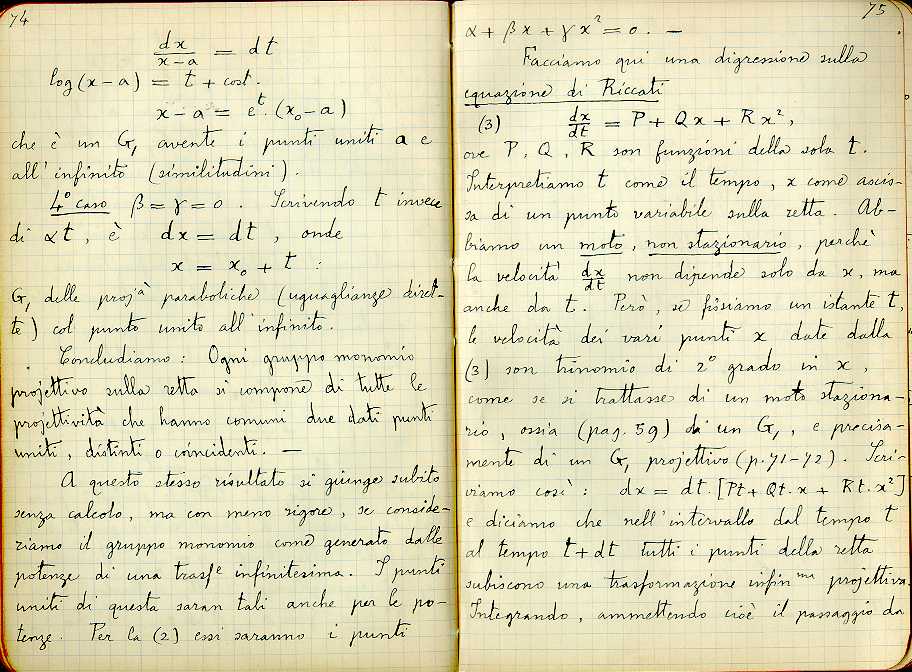 74
dx/x-a = dt
log(x-a) = t + cost.
x-a = e^t.(x₀-a)
che è un G₁ avente i punti uniti a e
all'infinito (similitudini).
4° caso β=γ=0. Scrivendo t invece
di αt, è dx = dt, onde
x = x₀ + t :
G₁ delle proj.à paraboliche (uguaglianze diret-
te) col punto unito all'infinito.
Concludiamo: Ogni gruppo monomio
projettivo sulla retta si compone di tutte le
projettività che hanno comuni due dati punti
uniti, distinti o coincidenti. —
A questo stesso risultato si giunge subito
senza calcolo, ma con meno rigore, se conside-
riamo il gruppo monomio come generato dalle
potenze di una trasf.e infinitesima. I punti
uniti di questa saran tali anche per le po-
tenze. Per la (2) essi saranno i punti
75
α + βx + γx² = 0. —
Facciamo qui una digressione sulla
equazione di Riccati
(3) dx/dt = P + Qx + Rx²,
ove P, Q, R son funzioni della sola t.
Interpretiamo t come il tempo, x come ascis-
sa di un punto variabile sulla retta. Ab-
biamo un moto, non stazionario, perchè
la velocità dx/dt non dipende solo da x, ma
anche da t. Però, se fissiamo un istante t,
le velocità dei vari punti x date dalla
(3) son trinomio di 2° grado in x,
come se si trattasse di un moto staziona-
rio, ossia (pag. 59) di un G₁, e precisa-
mente di un G₁ projettivo (p.71-72). Scri-
viamo così: dx = dt.[Pt + Qt.x + Rt.x²]
e diciamo che nell'intervallo dal tempo t
al tempo t+dt tutti i punti della retta
subiscono una trasformazione infin.ma projettiva.
Integrando, ammettendo cioè il passaggio da